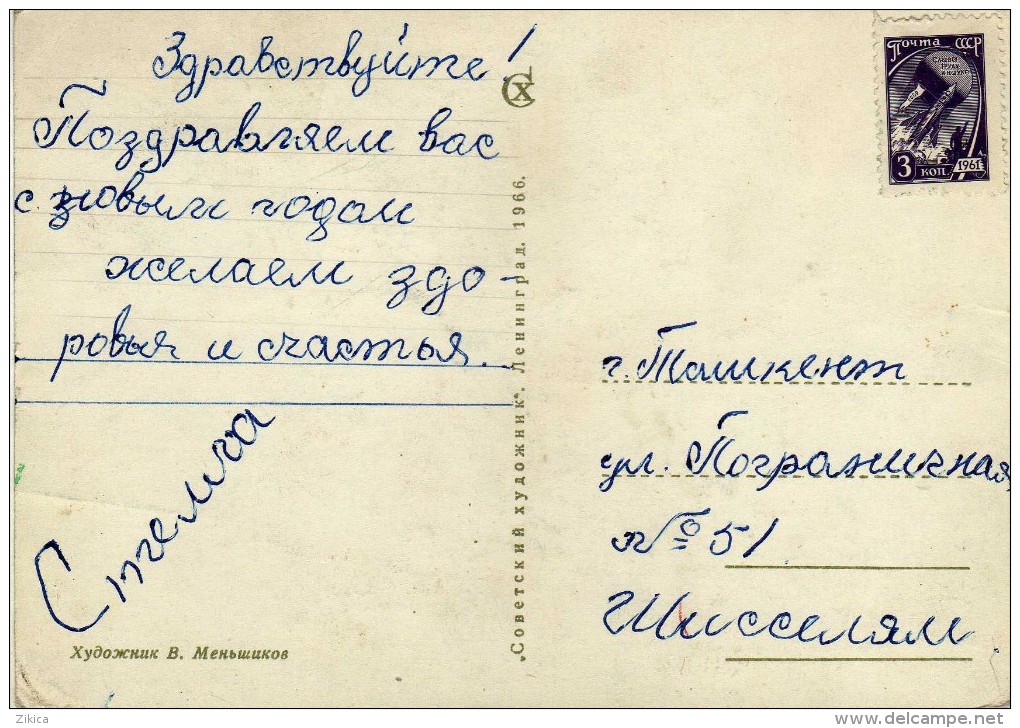 Здравствуйте!
Поздравляем вас
с новым годом
желаем здо-
ровья и счастья.
Художник В. Меньшиков
„Советский художник“. Ленинград. 1966.
СХ
Почта СССР
СЛАВА ТРУДА И НАУКЕ
3 коп. 1961
г. Ташкент
ул. Пограничная
№ 51
Шисселям
Zikica
www.delcampe.net